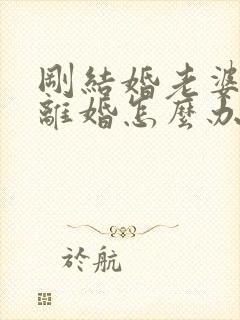 剛結婚老婆
離婚怎麼办
於航